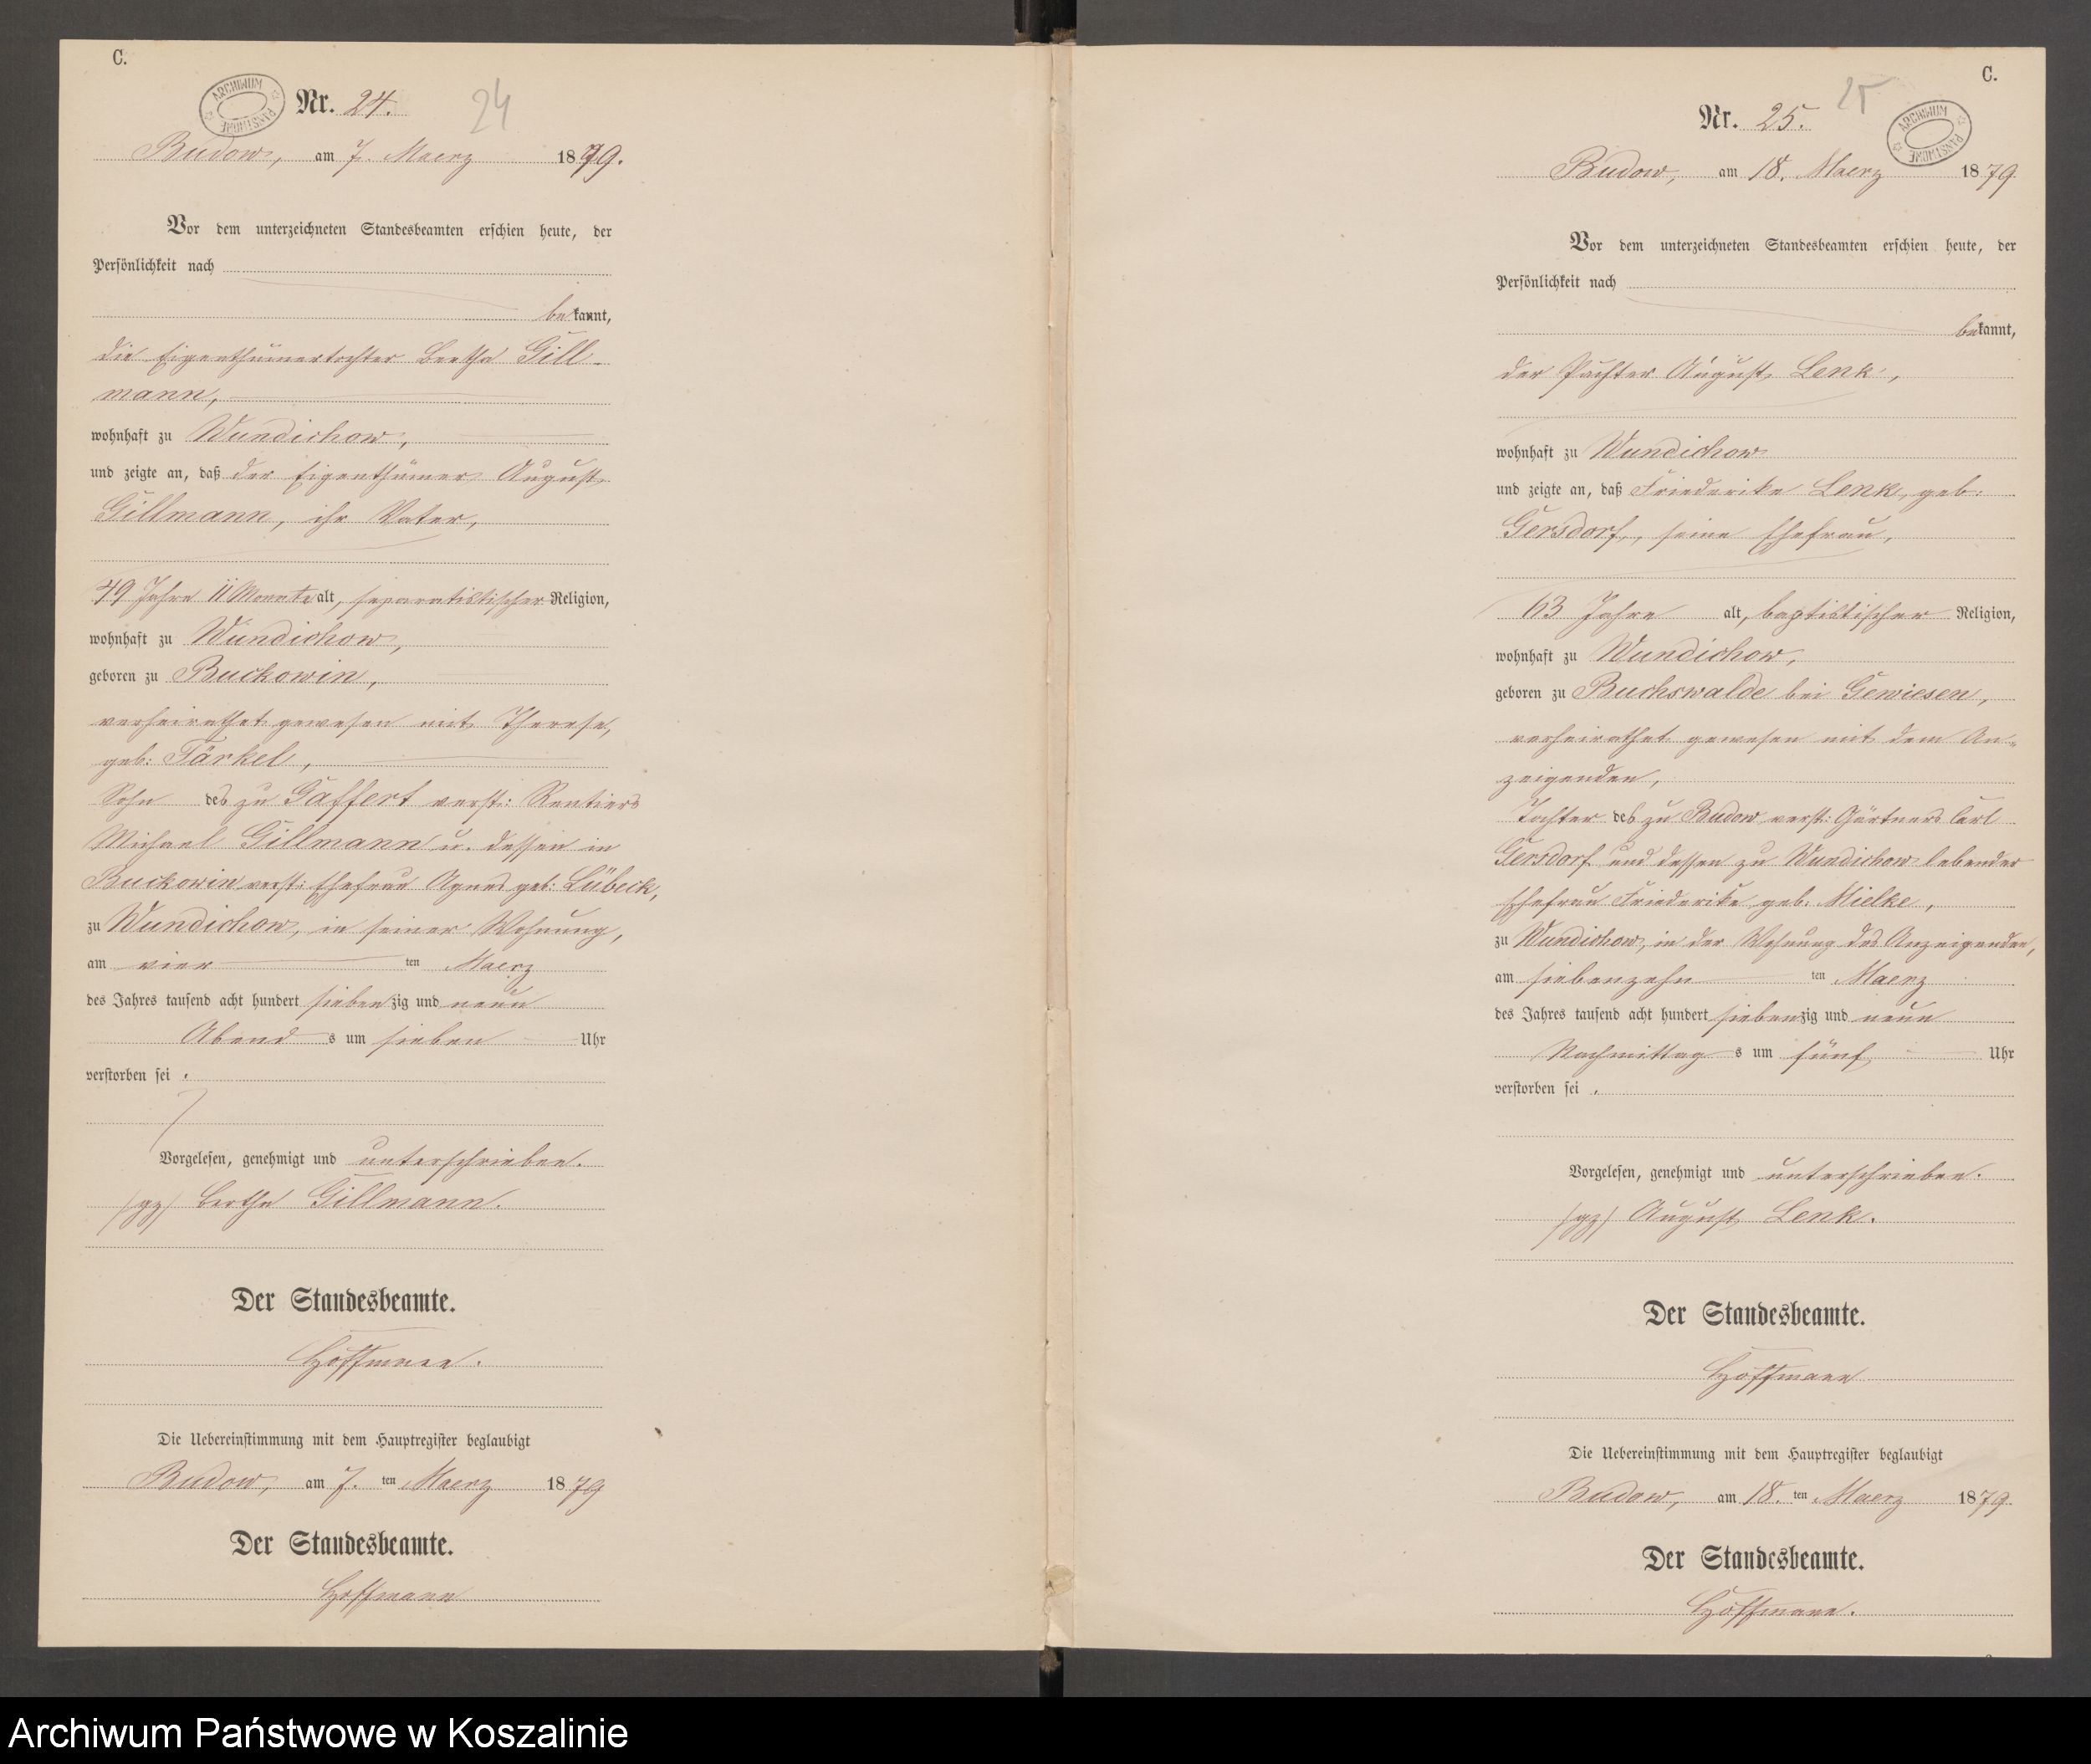 C.
ARCHIWUM PAŃSTWOWE
Nr. 24.
24
Budow, am 7. Maerz 1879.
Vor dem unterzeichneten Standesbeamten erschien heute, der
Persönlichkeit nach
bekannt,
die Eigenthümertochter Bertha Gill-
mann,
wohnhaft zu Wundichow,
und zeigte an, daß der Eigenthümer August
Gillmann, ihr Vater,
49 Jahre 11 Monate alt, separatistischer Religion,
wohnhaft zu Wundichow,
geboren zu Buckowin,
verheirathet gewesen mit Therese,
geb: Tärkel,
Sohn des zu Gaffert verst: Rentiers
Michael Gillmann u. dessen in
Buckowin verst: Ehefrau Agnes geb: Lübeck,
zu Wundichow, in seiner Wohnung,
am vier ten Maerz
des Jahres tausend acht hundert siebenzig und neun
Abend s um sieben Uhr
verstorben sei.
Vorgelesen, genehmigt und unterschrieben.
(gz) Bertha Gillmann.
Der Standesbeamte.
Hoffmann.
Die Uebereinstimmung mit dem Hauptregister beglaubigt
Budow, am 7. ten Maerz 1879
Der Standesbeamte.
Hoffmann
C.
25
ARCHIWUM PAŃSTWOWE
Nr. 25.
Budow, am 18. Maerz 1879
Vor dem unterzeichneten Standesbeamten erschien heute, der
Persönlichkeit nach
bekannt,
der Pächter August Lenk,
wohnhaft zu Wundichow
und zeigte an, daß Friederike Lenk, geb:
Gersdorf, seine Ehefrau,
63 Jahre alt, baptistischer Religion,
wohnhaft zu Wundichow,
geboren zu Buchswalde bei Gewiesen,
verheirathet gewesen mit dem An-
zeigenden,
Tochter des zu Budow verst: Gärtners Carl
Gersdorf und dessen zu Wundichow lebender
Ehefrau Friederike, geb. Mielke,
zu Wundichow, in der Wohnung des Anzeigenden,
am siebenzehn ten Maerz
des Jahres tausend acht hundert siebenzig und neun
Nachmittag s um fünf Uhr
verstorben sei.
Vorgelesen, genehmigt und unterschrieben.
(gz) August Lenk.
Der Standesbeamte.
Hoffmann
Die Uebereinstimmung mit dem Hauptregister beglaubigt
Budow, am 18. ten Maerz 1879.
Der Standesbeamte.
Hoffmann.
Archiwum Państwowe w Koszalinie